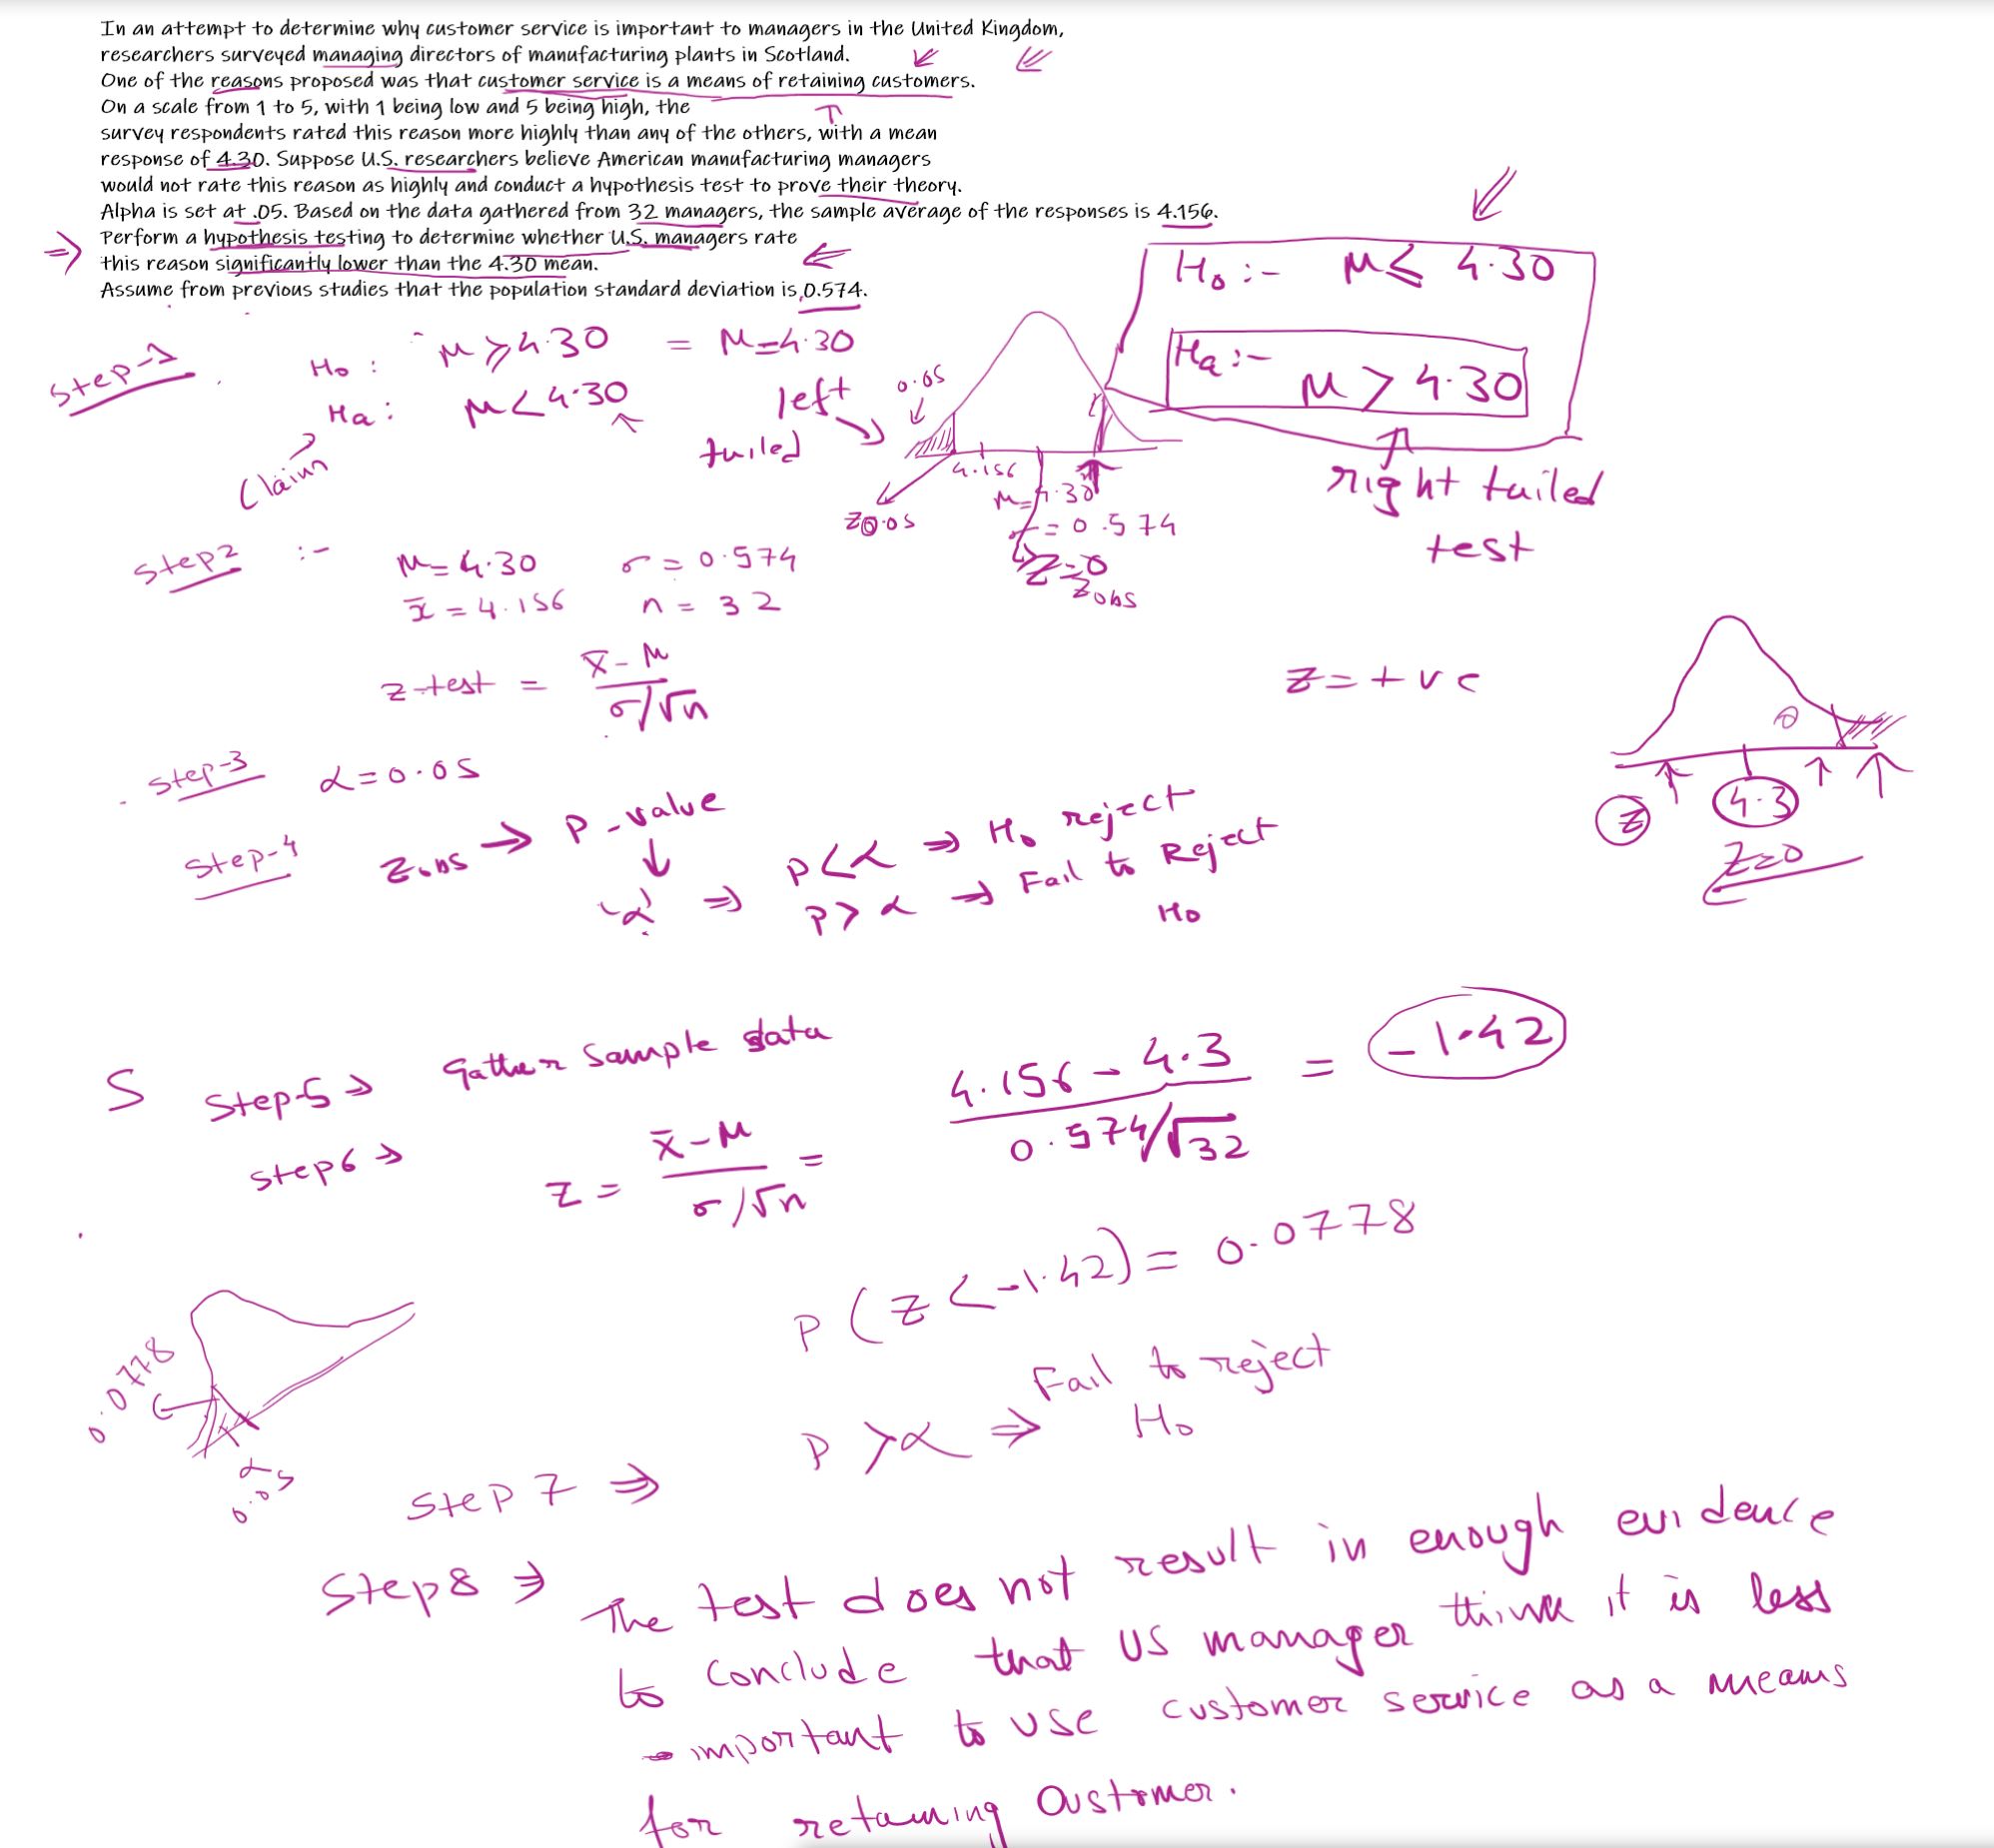 In an attempt to determine why customer service is important to managers in the United Kingdom,
researchers surveyed managing directors of manufacturing plants in Scotland.
One of the reasons proposed was that customer service is a means of retaining customers.
On a scale from 1 to 5, with 1 being low and 5 being high, the
survey respondents rated this reason more highly than any of the others, with a mean
response of 4.30. Suppose U.S. researchers believe American manufacturing managers
would not rate this reason as highly and conduct a hypothesis test to prove their theory.
Alpha is set at .05. Based on the data gathered from 32 managers, the sample average of the responses is 4.156.
Perform a hypothesis testing to determine whether U.S. managers rate
this reason significantly lower than the 4.30 mean.
Assume from previous studies that the population standard deviation is 0.574.
H₀ :- μ ≤ 4.30
Ha :- μ > 4.30
right tailed
test
Step-1
H₀ : μ ≥ 4.30 = μ=4.30
Ha : μ < 4.30
Claim
left
tailed
0.05
4.156
μ=4.30
σ = 0.574
Z0.05
Z=0
Zobs
Step2 :- μ=4.30 σ = 0.574
x̄ = 4.156 n = 32
z-test = x̄ - μ / σ/√n
z = +ve
4.3
Z
Z=0
Step-3 α = 0.05
Step-4 Zobs → P-value
α ⇒ P < α ⇒ H₀ reject
P > α → Fail to Reject
H₀
S Step-5 ⇒ Gather sample data
Step6 → z = x̄ - μ / σ/√n = 4.156 - 4.3 / 0.574/√32 = -1.42
P(z < -1.42) = 0.0778
0.0778
α
0.05
Step 7 ⇒ P > α ⇒ Fail to reject
H₀
Step8 ⇒ The test does not result in enough evidence
to conclude that US manager think it is less
important to use customer service as a means
for retaining customer.